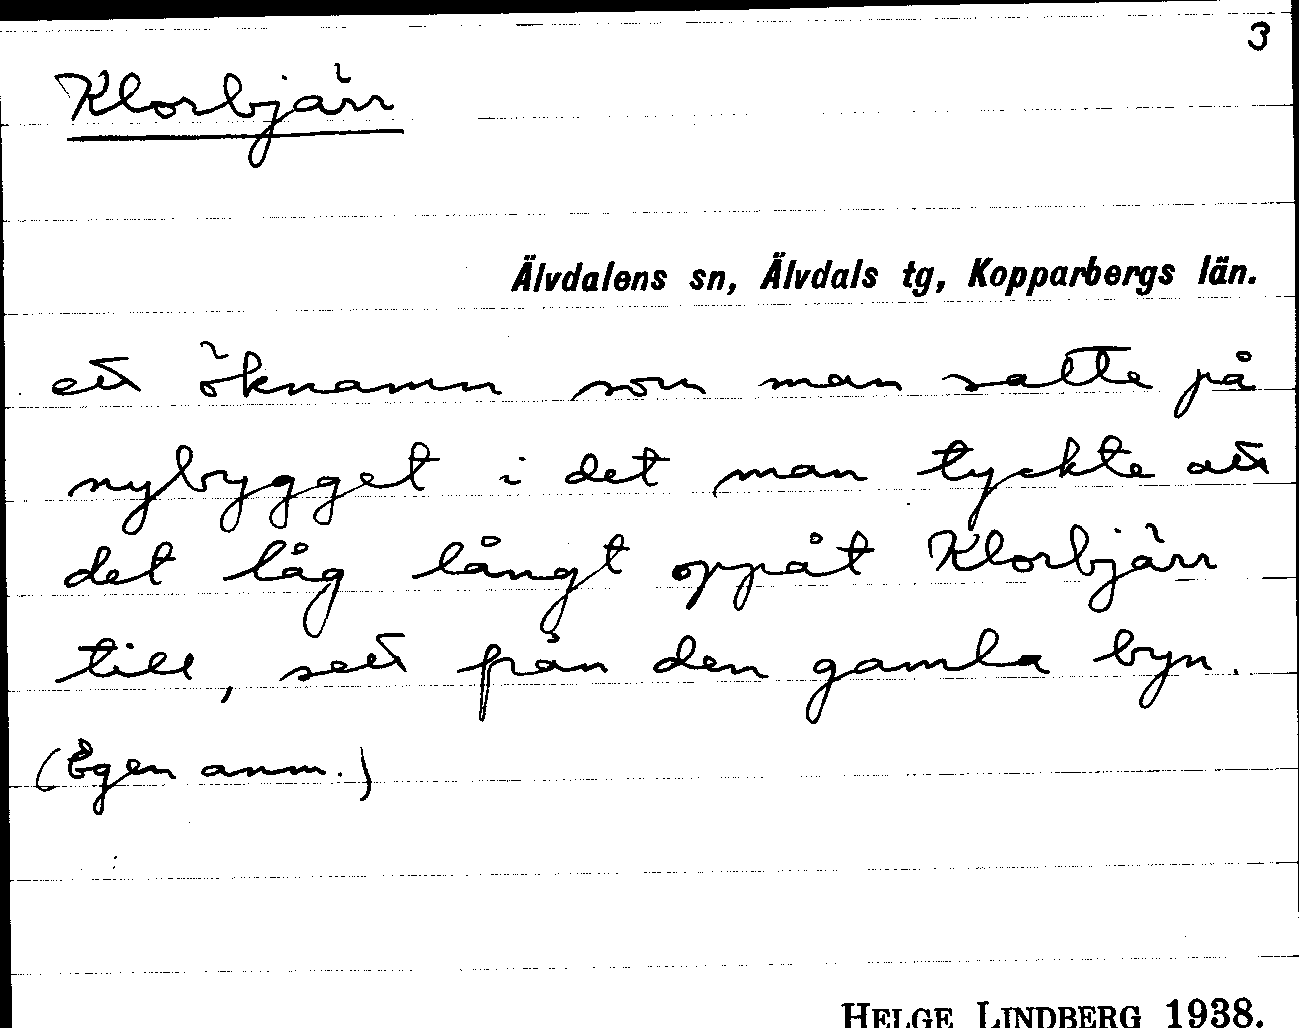 3
Klorbjärr
Älvdalens sn, Älvdals tg, Kopparbergs län.
ett öknamn som man satte på
nybygget i det man tyckte att
det låg långt oppåt Klorbjärr
till, sett från den gamla byn.
(Egen anm.)
HELGE LINDBERG 1938.